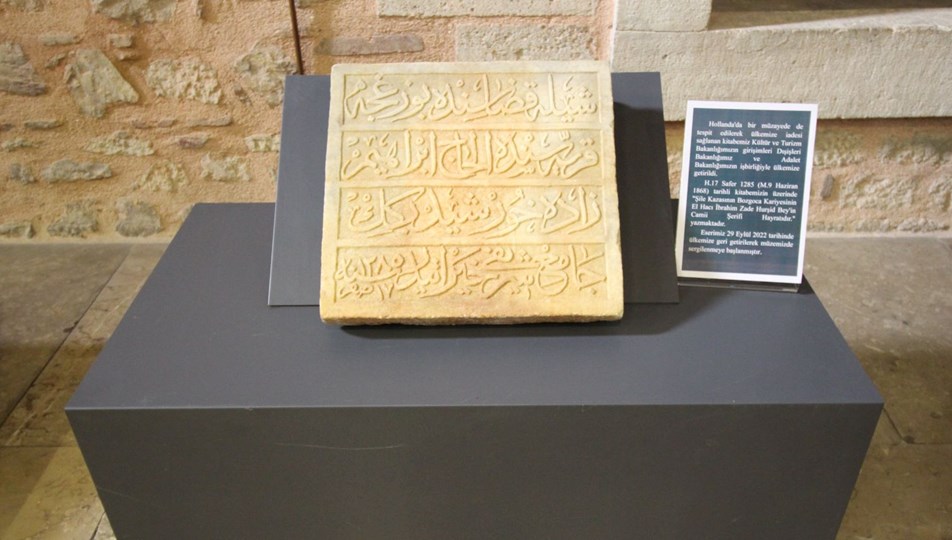 شیله قضاسنده بوزغجه
قریه سنده الحاج ابراهیم
زاده خورشید بك
جامع شریف خیراتیدر سنه ١٢٨٥ ١٧
Hollanda'da bir müzayede de
tespit edilerek ülkemize iadesi
sağlanan kitabemiz Kültür ve Turizm
Bakanlığımızın girişimleri Dışişleri
Bakanlığımız ve Adalet
Bakanlığımızın işbirliğiyle ülkemize
getirildi.
H.17 Safer 1285 (M.9 Haziran
1868) tarihli kitabemizin üzerinde
"Şile Kazasının Bozgoca Kariyesinin
El Hacı İbrahim Zade Hurşid Bey'in
Camii Şerifi Hayratıdır."
yazmaktadır.
Eserimiz 29 Eylül 2022 tarihinde
ülkemize geri getirilerek müzemizde
sergilenmeye başlanmıştır.